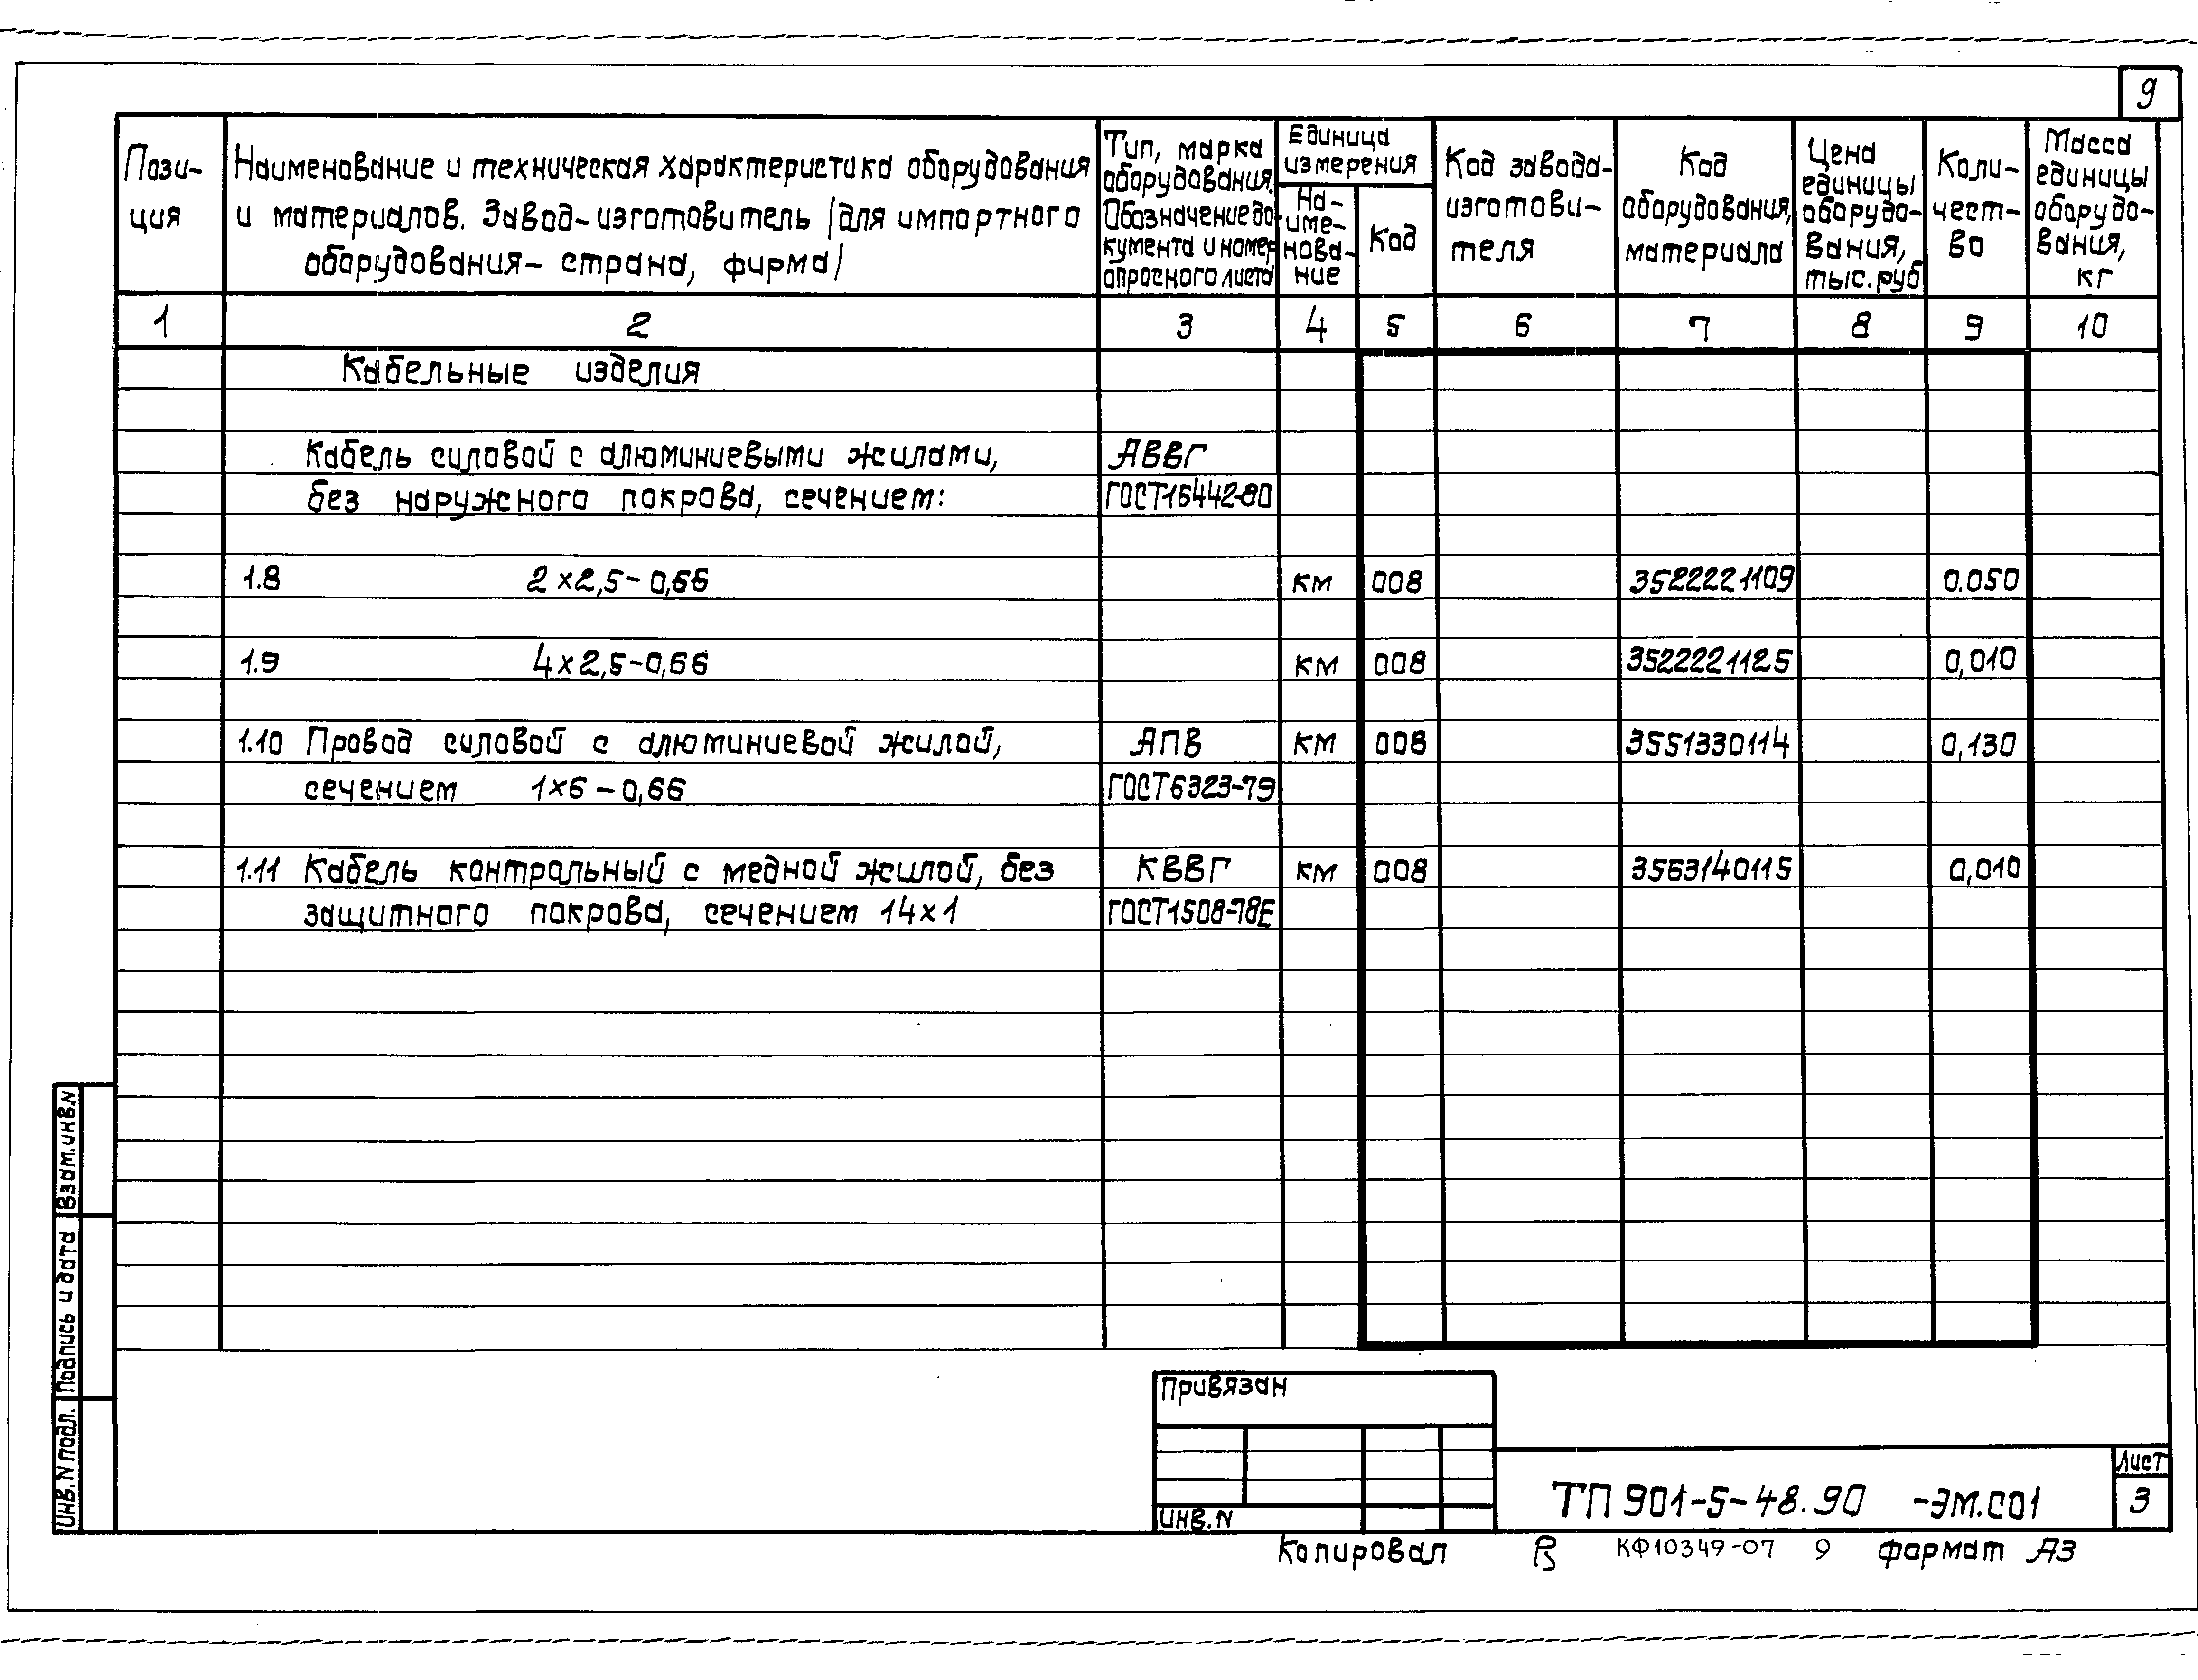 9
Пози-
ция
Наименование и техническая характеристика оборудования
и материалов. Завод-изготовитель (для импортного
оборудования- страна, фирма)
Тип, марка
оборудования.
Обозначение до-
кумента и номер
опросного листа
Единица
измерения
На-
име-
нова-
ние
Код
Код завода-
изготови-
теля
Код
оборудования,
материала
Цена
единицы
оборудо-
вания,
тыс.руб
Коли-
чест-
во
Масса
единицы
оборудо-
вания,
кг
1 2 3 4 5 6 7 8 9 10
Кабельные изделия
Кабель силовой с алюминиевыми жилами, АВВГ
без наружного покрова, сечением: ГОСТ16442-80
1.8 2×2,5-0,66 км 008 3522221109 0.050
1.9 4×2,5-0,66 км 008 3522221125 0,010
1.10 Провод силовой с алюминиевой жилой, АПВ км 008 3551330114 0,130
сечением 1×6-0,66 ГОСТ6323-79
1.11 Кабель контрольный с медной жилой, без КВВГ км 008 3563140115 0,010
защитного покрова, сечением 14×1 ГОСТ1508-78Е
Взам.инв.N
Подпись и дата
Инв.N подл.
Привязан
Инв.N
ТП 901-5-48.90 -ЭМ.СО1
Лист
3
Копировал КФ10349-07 9 формат А3